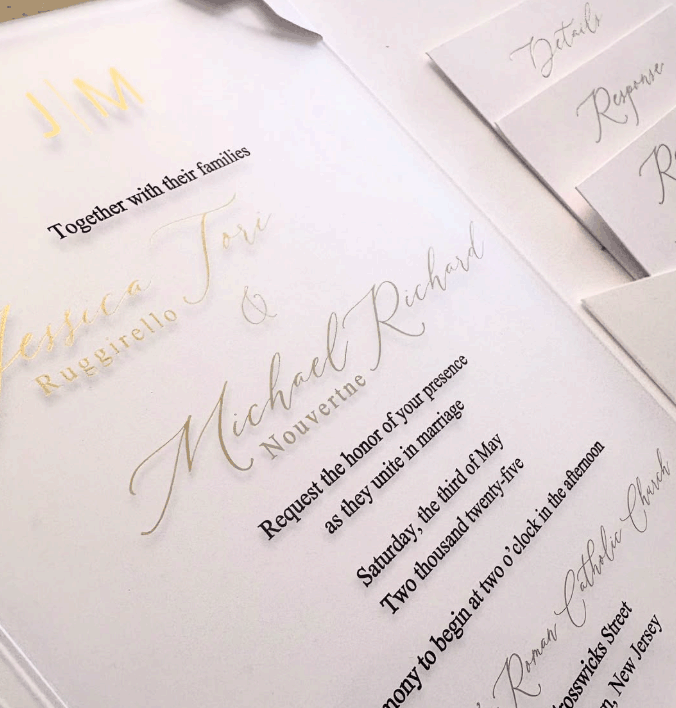 J | M
Together with their families
Jessica Tori
Ruggirello
&
Michael Richard
Nouvertne
Request the honor of your presence
as they unite in marriage
Saturday, the third of May
Two thousand twenty-five
to begin at two o'clock in the afternoon
Roman Catholic Church
Street
New Jersey
Details
Response